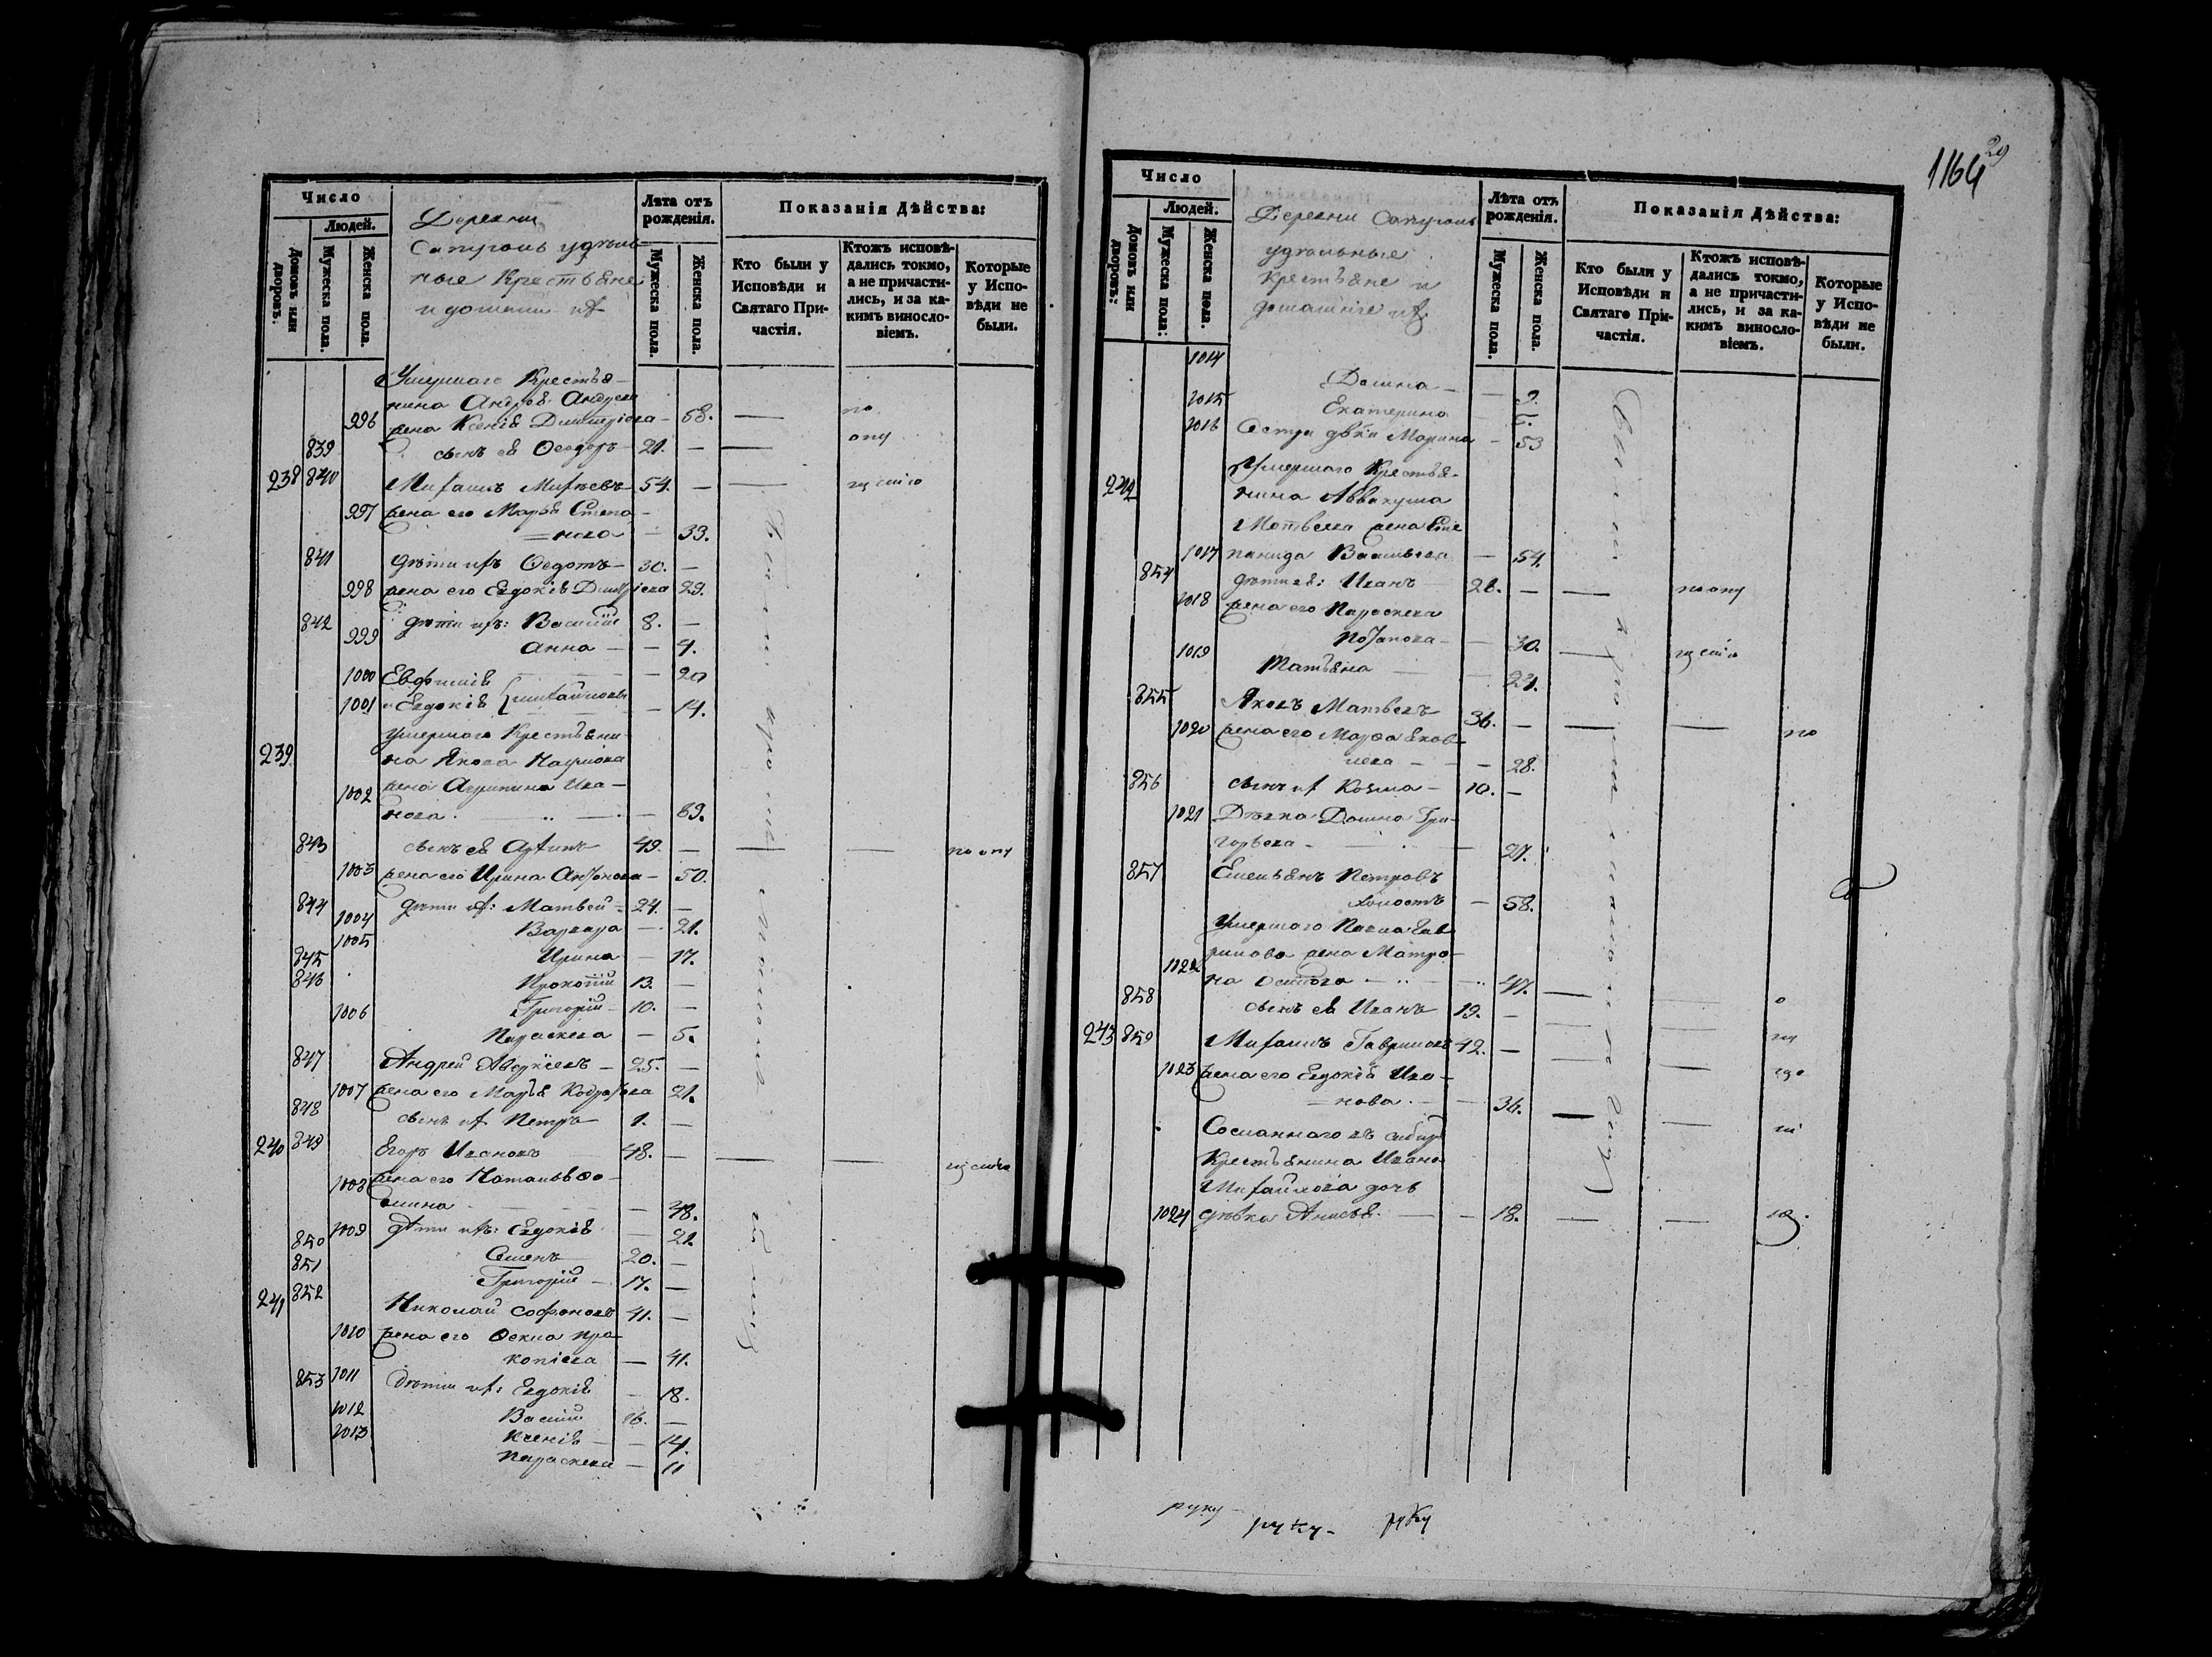 Число
Людей.
Домовъ или дворовъ:
Мужеска пола.
Женска пола.
Деревни
Сапуголь удѣль-
ные Крестьяне
и домашн их
Лѣта отъ рожденія.
Мужеска пола.
Женска пола.
Показанія Дѣйства:
Кто были у Исповѣди и Святаго При-частія.
Ктожъ исповѣ-дались токмо, а не причасти-лись, и за ка-кимъ винословіемъ.
Которые у Испо-вѣди не были.
Умершаго Крестья-
нина Андрея
996 жена Ксенія Димитріева — 58. — по
839 сынъ ея Ѳеодоръ — 21. — — опу
238 840 Михаилъ 54. — —
997 жена его Марья Степа-
=нова — 33.
841 дѣти ихъ Ѳедотъ — 30. —
998 жена его Евдокія Димитріева 29.
842 дѣти ихъ: Василій 8. —
999 Анна — — 4.
1000 Евфимія — 20
1001 и Евдокія Михайловы — 14.
умершаго Крестьяни-
239 на Якова Наумова
1002 жена Агрипина Ива-
нова. — 69.
843 сынъ ея Архипъ 49. — — — по опу
1003 жена его Ирина Антонова — 50.
844 дѣти их: Матвей — 24. —
1004 Варвара — 21.
1005 Ирина — 17.
845
846 Прокопій 13. —
Григорій — 10. —
1006 Параскева — 5.
847 Андрей — 25. —
1007 жена его Марья 21.
848 сынъ их Петръ 1. —
240 849 Егоръ Ивановъ 48. — — —
1008 жена его Наталья Ѳо-
мина — 48.
1009 дѣти ихъ: Евдокія — 21.
850 Семенъ 20. —
851 Григорій — 17. —
241 852 Николай Софоновъ 41. —
1010 жена его Ѳекла Про-
копіева — 41.
1011 дѣти их: Евдокія — 18.
853 Василій 16. —
1012 Ксенія — — 14.
1013 Параскева — 11
1164
29
Число
Людей.
Домовъ или дворовъ:
Мужеска пола:
Женска пола.
Деревни Сапуголь
удѣльные
Крестьяне и
домашніе их
Лѣта отъ рожденія.
Мужеска пола.
Женска пола.
Показанія Дѣйства:
Кто были у Исповѣди и Святаго При-частія.
Ктожъ исповѣ-дались токмо, а не причасти-лись, и за ка-кимъ винословіемъ.
Которые у Испо-вѣди не были.
1014 Домна — — 9.
1015 Екатерина
1016 Сестра дѣвка Марина — 53
Умершаго Крестья-
242 нина Аввакума
Матвеева жена Сте
1017 панида Васильева — 54.
854 дѣти ея: Иванъ 28. — — по опу
1018 жена его Параскева
Потапова — — 30. —
1019 Татьяна — — 21.
855 Яковъ Матвеевъ 36. — — — по
1020 жена его Марѳа Яков-
лева — — — 28.
856 сынъ их Козма — 10. —
1021 Дѣвка Домна Гри-
горьева — — 27.
857 Емельянъ Петровъ
холостъ — 58.
Умершаго Павла Гав
рилова жена Матро-
1022 на Осипова — — 47. —
858 сынъ ея Иванъ 19. —
243 859 Михаилъ Гавриловъ 42. —
1023 жена его Евдокія Ива-
=нова. — — 36.
Сосланнаго въ Сибирь
Крестьянина Ивана
Михайлова дочь
1024 дѣвка Анисья. — — 18. — —
руку
руку-
руку